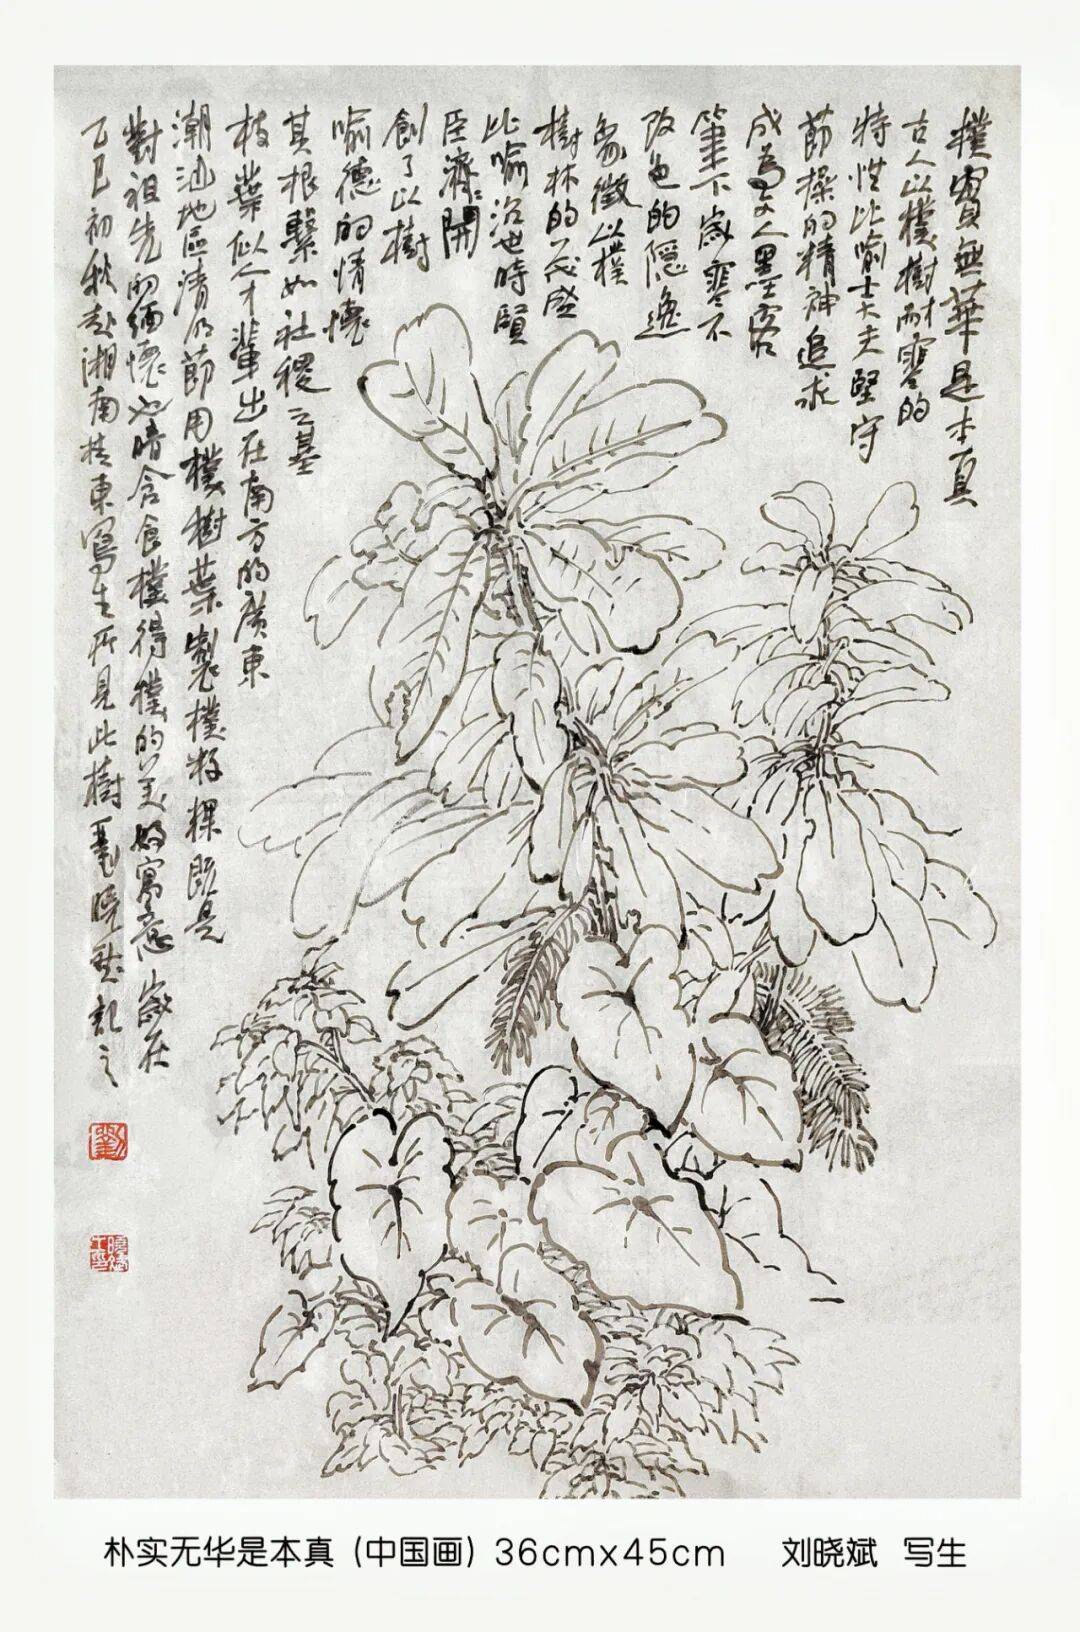 樸實無華是本真
古人以樸樹耐寒的
特性比喻士大夫堅守
節操的精神追求
成為文人墨客
筆下歲寒不
改色的隱逸
象徵以樸
樹林的茂盛
比喻治世時賢
臣濟濟開
創了以樹
喻德的情懷
其根繫如社稷之基
枝葉似人才輩出在南方的廣東
潮汕地區清明節用樸樹葉製樸籽粿既是
對祖先的緬懷也暗含食樸得樸的美好寓意歲在
乙巳初秋赴湘南桂東寫生所見此樹 曉斌記之
劉
朴实无华是本真(中国画)36cmx45cm 刘晓斌 写生